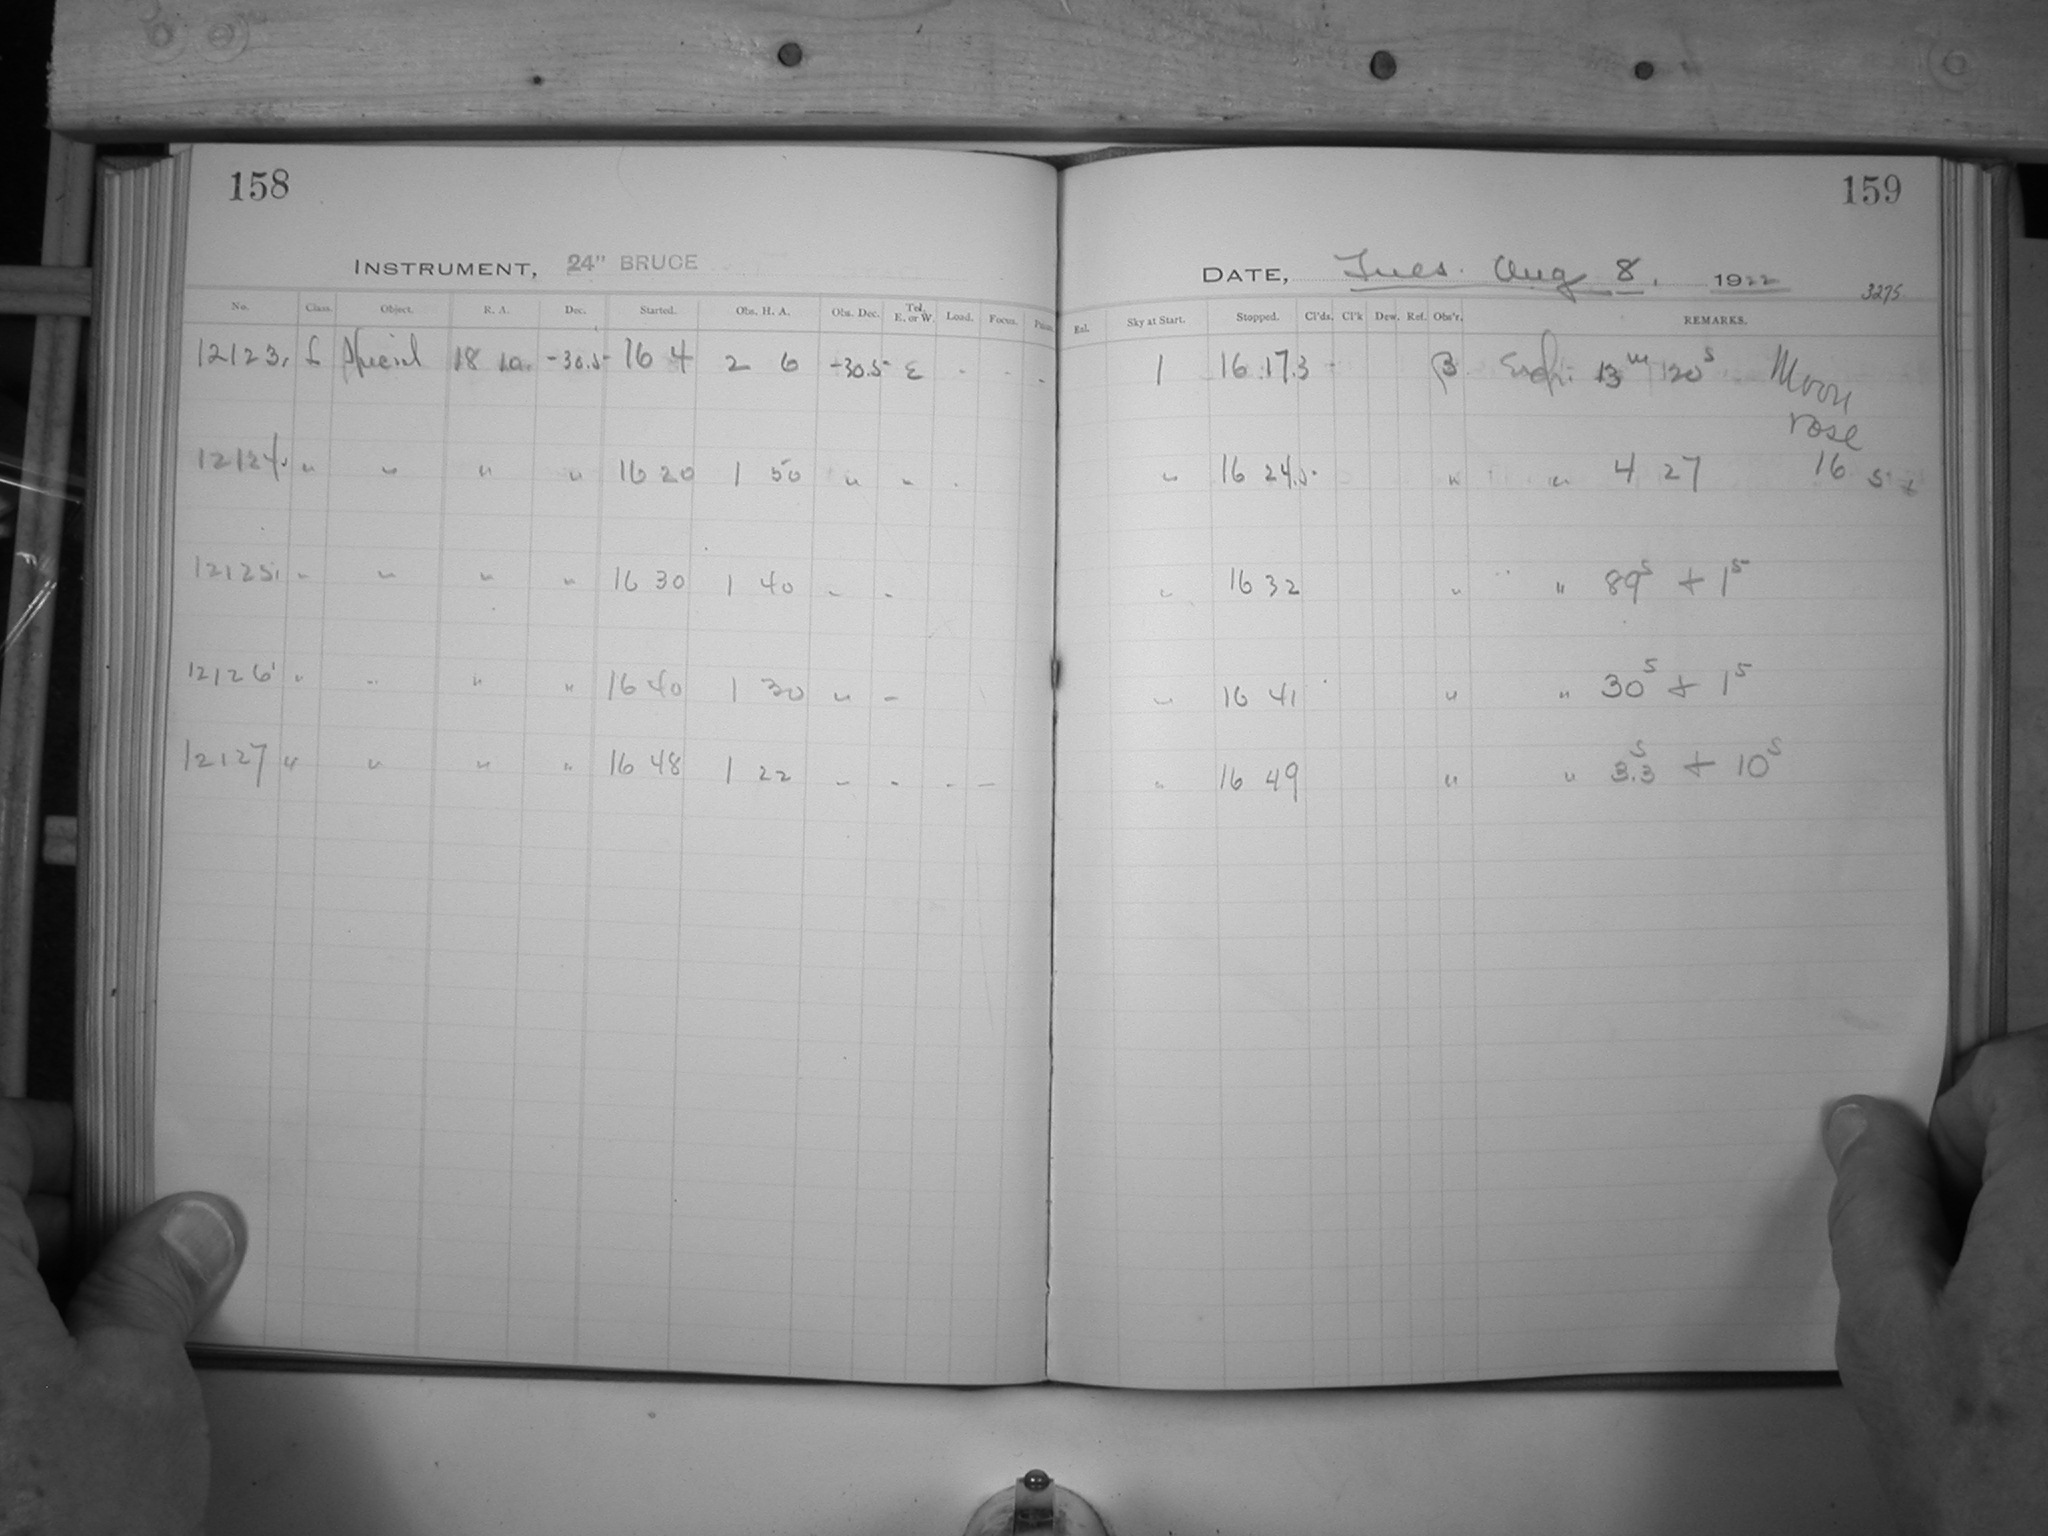 158
INSTRUMENT, 24" BRUCE
No. Class. Object. R. A. Dec. Started. Obs. H. A. Obs. Dec. Tel. E. or W. Load. Focus.
12123. L Special 18 10. -30.5 16 4 2 6 -30.5 E
12124. " " " " 16 20 1 50 " "
12125. " " " " 16 30 1 40 " "
12126 " " " " 16 40 1 30 " "
12127 " " " " 16 48 1 22 " "
159
DATE, Tues. Aug 8. 1922
3275
Sky at Start. Stopped. Cl'ds. Cl'k Dew. Ref. Obs'r. REMARKS.
1 16 17.3 13m 120s Moon
rose
" 16 24.5 " " 4 27 16 5
" 16 32 " " 89s + 1s
" 16 41 " " 30s + 1s
" 16 49 " " 3.3s + 10s